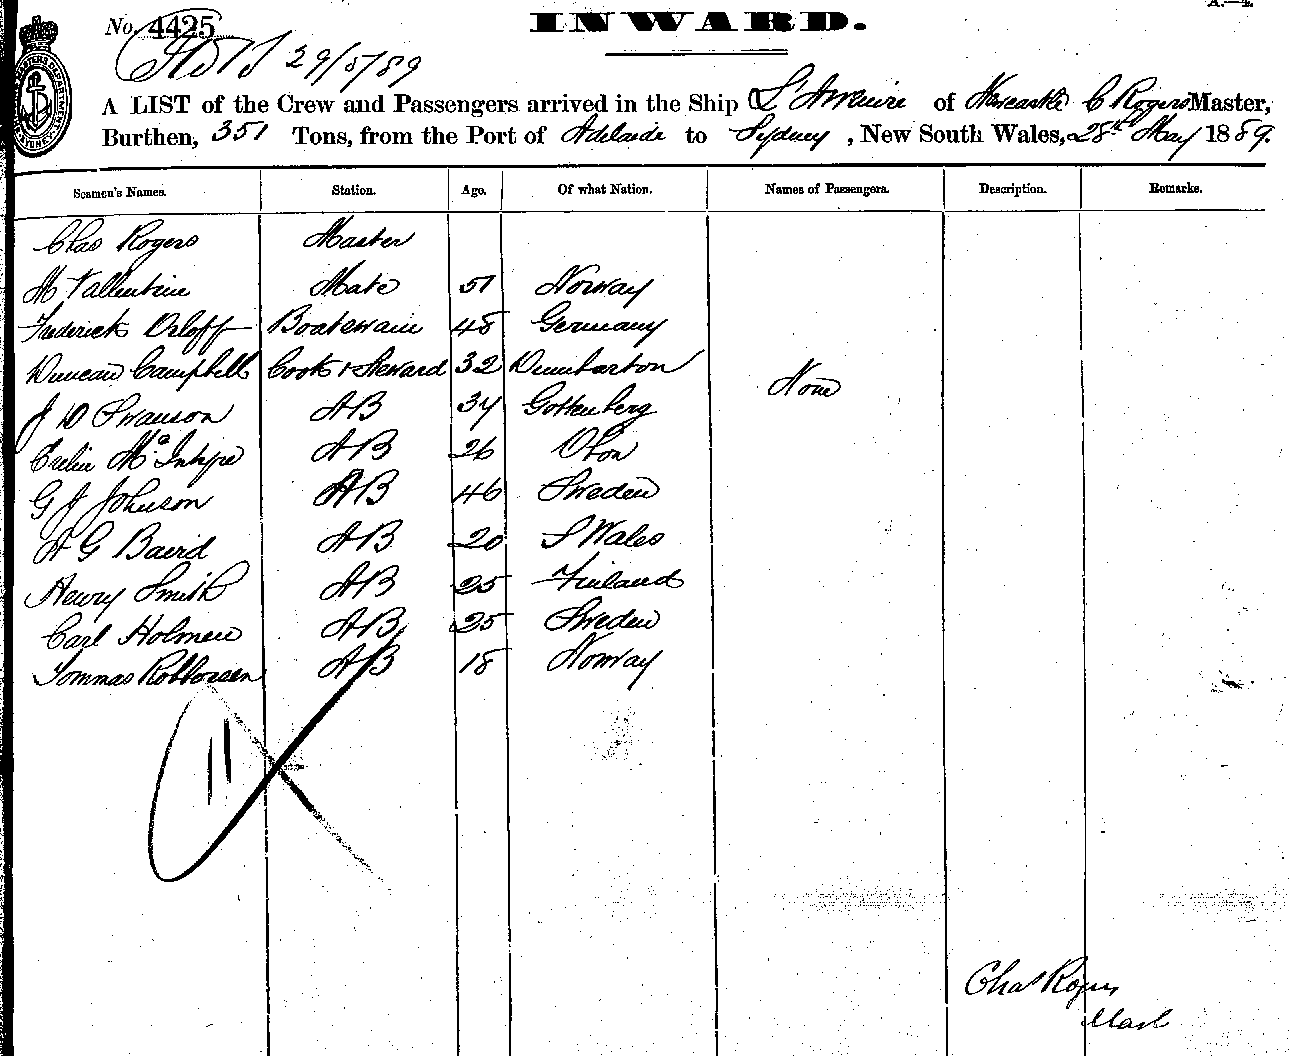 A.—4.
No. 4425
INWARD.
29/5/89
A LIST of the Crew and Passengers arrived in the Ship L'Avenire of Newcastle C Rogers Master,
Burthen, 351 Tons, from the Port of Adelaide to Sydney, New South Wales, 28th May 1889.
Seamen's Names. Station. Age. Of what Nation. Names of Passengers. Description. Remarks.
Chas Rogers Master
M Vallentine Mate 51 Norway
Frederick Orloff Boatswain 48 Germany
Duncan Campbell Cook & Steward 32 Dumbarton
None
J D Swanson AB 34 Gottenberg
McIntype AB 26 Oban
G J Johnson AB 46 Sweden
A G Baird AB 20 S Wales
Henry Smith AB 25 Finland
Carl Holmen AB 25 Sweden
Tommas Robborsen AB 18 Norway
11
Chas Rogers
Mast